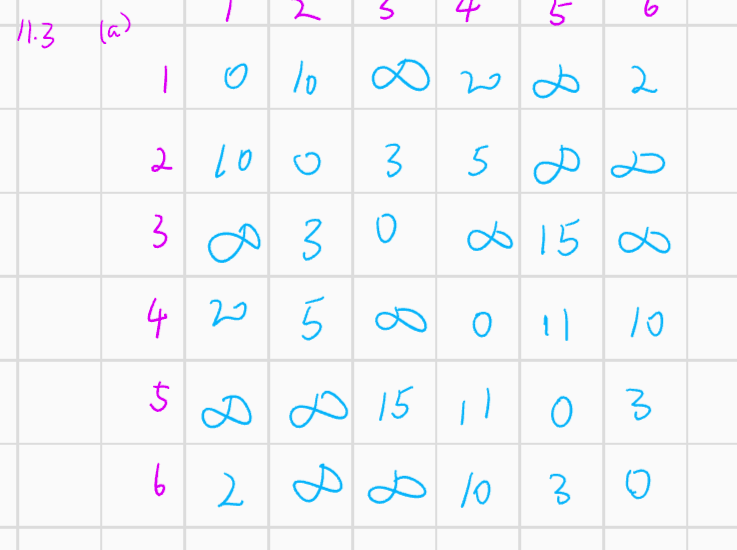 1 2 3 4 5 6
11.3 (a)
1 0 10 ∞ 20 ∞ 2
2 10 0 3 5 ∞ ∞
3 ∞ 3 0 ∞ 15 ∞
4 20 5 ∞ 0 11 10
5 ∞ ∞ 15 11 0 3
6 2 ∞ ∞ 10 3 0